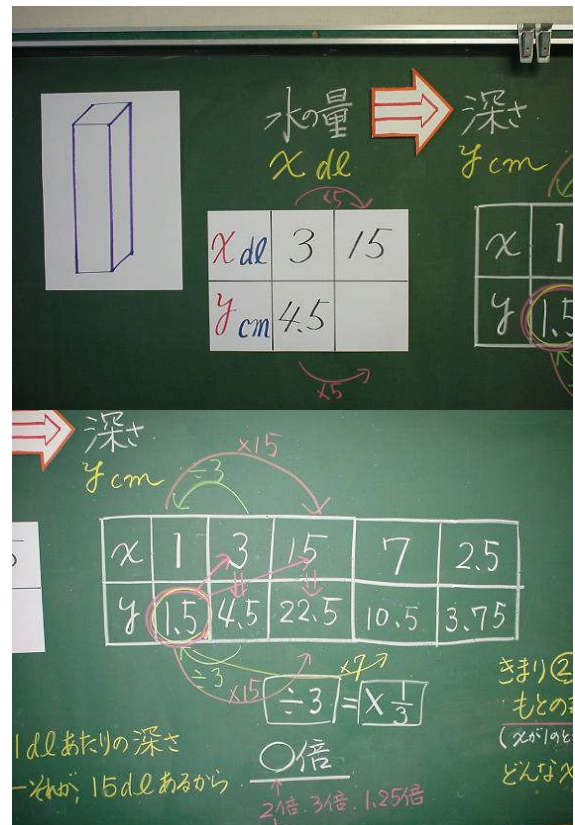 水の量
深さ
x dl
y cm
×5
x dl 3 15
y cm 4.5
×5
x 1
y 1.5
深さ
y cm
×15
÷3
x 1 3 15 7 2.5
y 1.5 4.5 22.5 10.5 3.75
÷3
×15
×7
÷3 = × 1/3
1dlあたりの深さ
それが、15dlあるから
○倍
2倍.3倍.1.25倍
きまり②
もとの
(xが1のと
どんなx